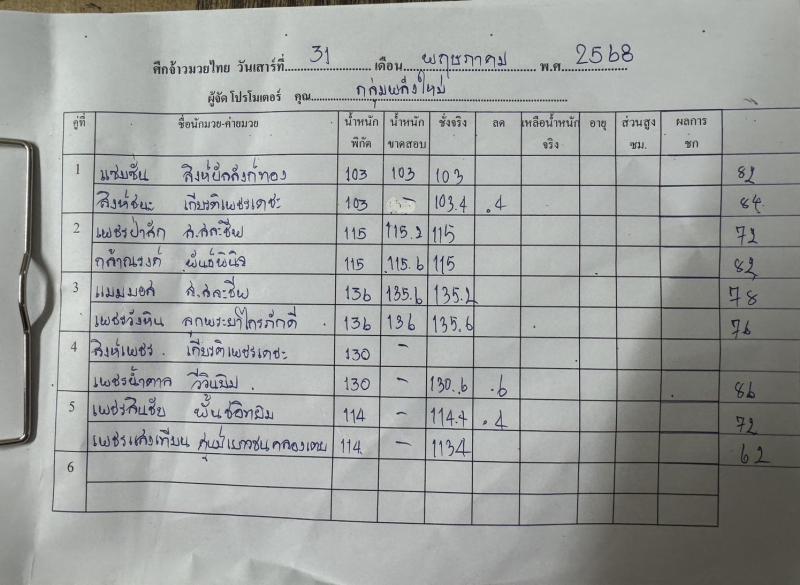 ศึกจ้าวมวยไทย วันเสาร์ที่ 31 เดือน พฤษภาคม พ.ศ 2568
ผู้จัด โปรโมเตอร์ คุณ กลุ่มพลังใหม่
คู่ที่ ชื่อนักมวย-ค่ายมวย น้ำหนักพิกัด น้ำหนักขาดสอบ ชั่งจริง ลด เหลือน้ำหนักจริง อายุ ส่วนสูง ซม. ผลการชก
1 แชมชั่น สิงห์บัลลังก์ทอง 103 103 103 82
สิงห์ชนะ เกียรติเพชรเดชะ 103 - 103.4 .4 84
2 เพชรป่าสัก ส.สละชีพ 115 115.2 115 72
กล้าณรงค์ พันธ์พินิจ 115 115.6 115 82
3 แมมมอส ส.สละชีพ 136 135.6 135.2 78
เพชรวังหิน ลูกพระยาไกรภักดี 136 136 135.6 76
4 สิงห์เพชร เกียรติเพชรเดชะ 130 -
เพชรน้ำตาล วีวินยิม 130 - 130.6 .6 86
5 เพชรสินชัย พั้นช์อิทยิม 114 - 114.4 .4 72
เพชรแสงเทียน ศูนย์เยาวชนคลองเตย 114 - 113.4 62
6